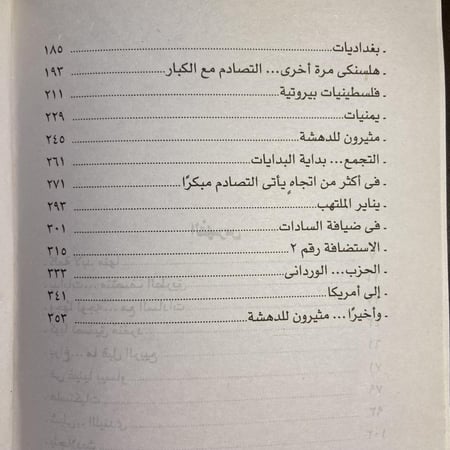 - بغداديات ١٨٥
- هلسنكى مرة أخرى... التصادم مع الكبار ١٩٣
- فلسطينيات بيروتية ٢١١
- يمنيات ٢٢٩
- مثيرون للدهشة ٢٤٥
- التجمع... بداية البدايات ٢٦١
- فى أكثر من اتجاهٍ يأتى التصادم مبكرًا ٢٧١
- يناير الملتهب ٢٩٣
- فى ضيافة السادات ٣٠١
- الاستضافة رقم ٢ ٣١٥
- الحزب... الوردانى ٣٣٣
- إلى أمريكا ٣٤١
- وأخيرًا... مثيرون للدهشة ٣٥٣